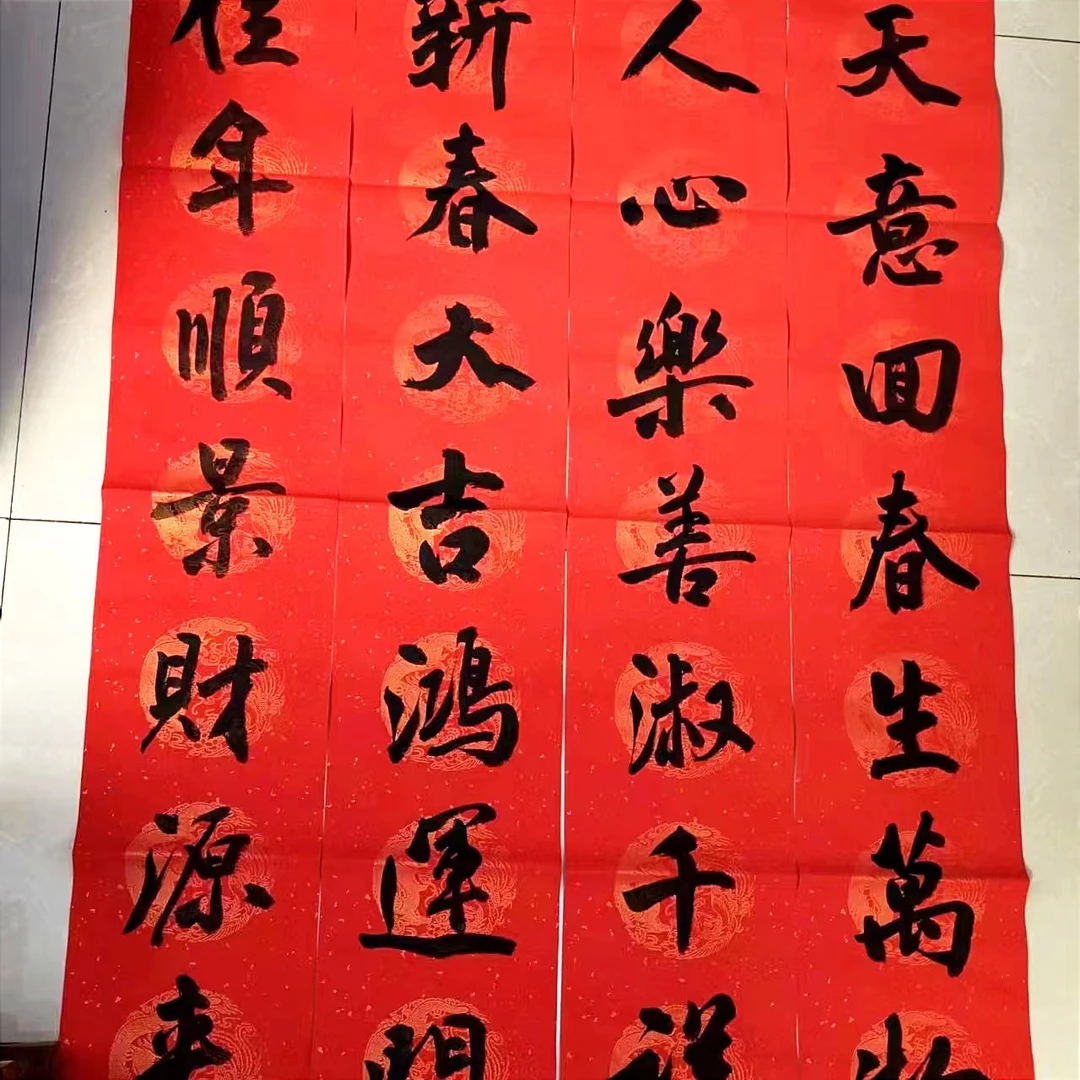 天意回春生萬物
人心樂善淑千祥
新春大吉鴻運開
佳年順景財源来